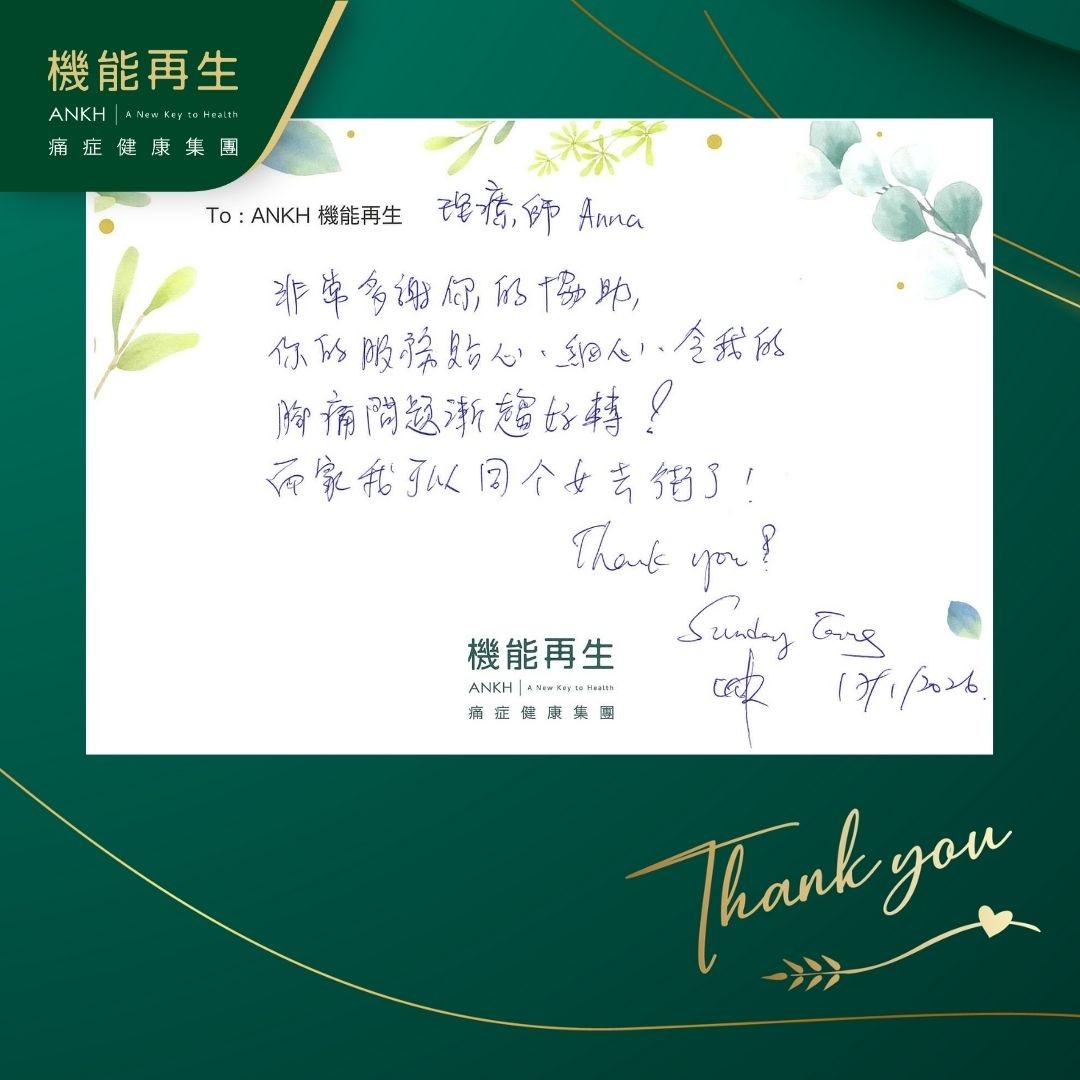 機能再生
ANKH | A New Key to Health
痛症健康集團
To : ANKH 機能再生 理療師 Anna
非常多謝你的協助,
你的服務貼心、細心、令我的
腳痛問題漸趨好轉!
而家我可以同个女去街了!
Thank you!
Sunday
機能再生
ANKH | A New Key to Health
痛症健康集團
/1/2026.
Thank you